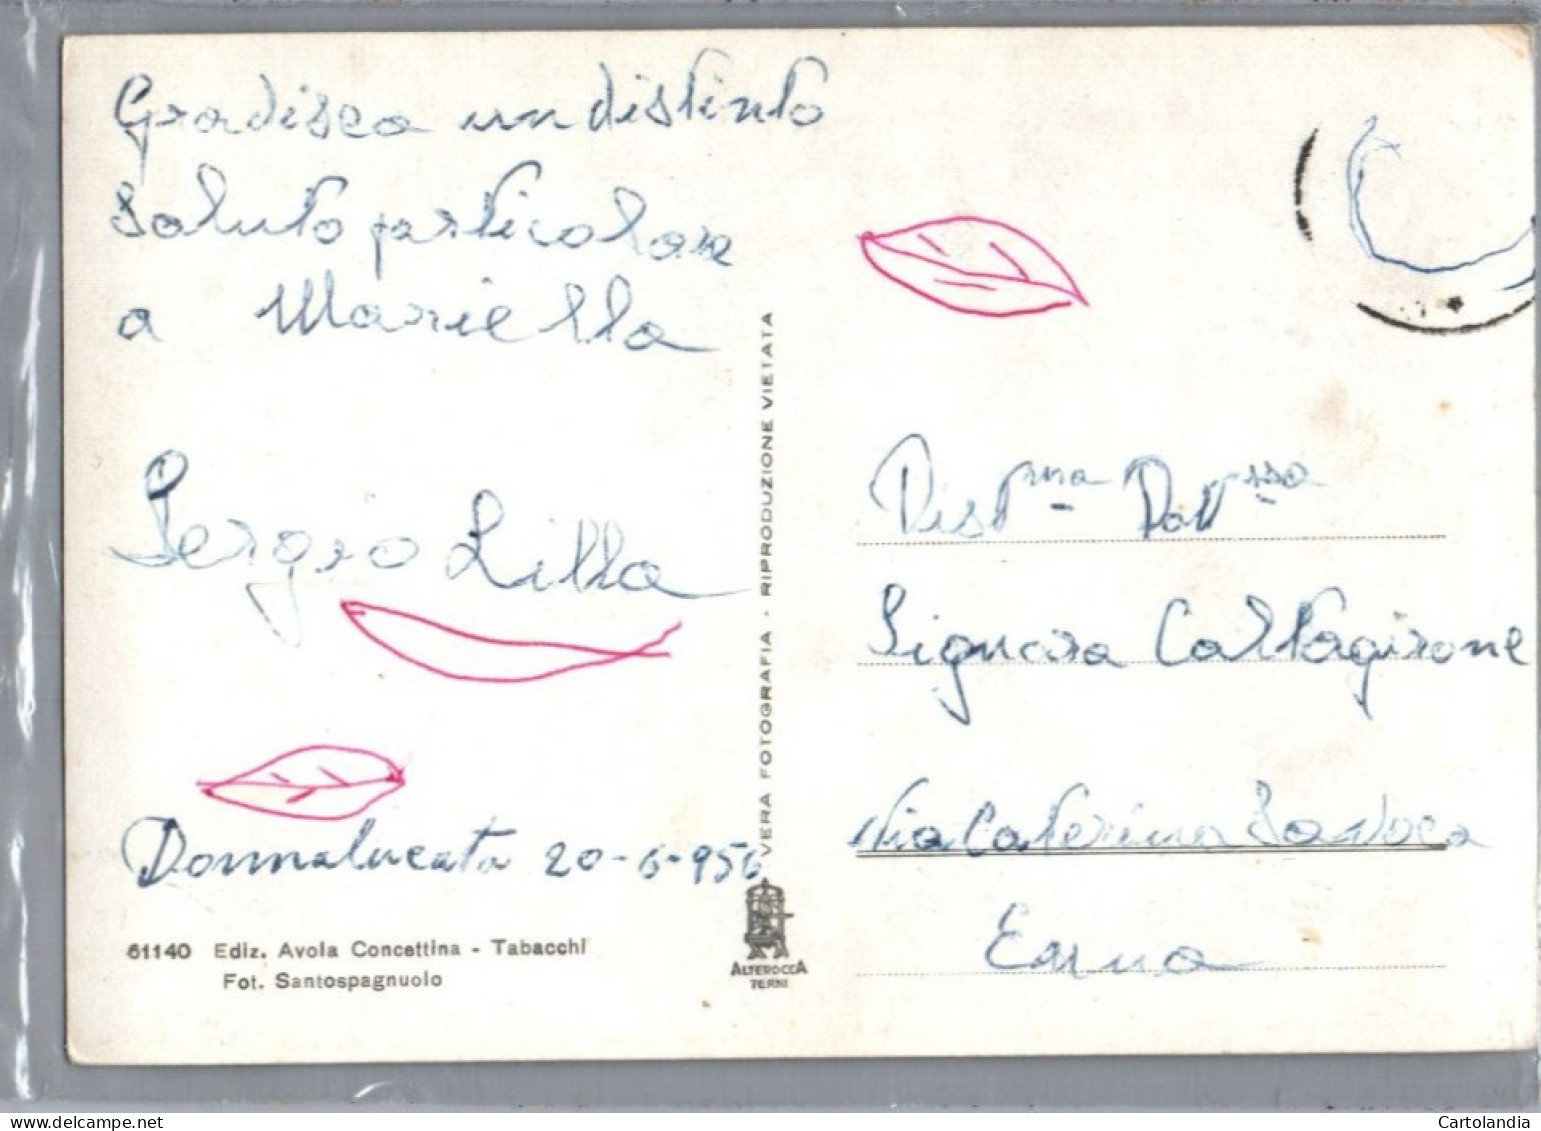 Gradisca un distinto
saluto particolare
a Mariella
Sergio Lilla
Donnalucata 20-6-956
61140 Ediz. Avola Concettina - Tabacchi
Fot. Santospagnuolo
VERA FOTOGRAFIA - RIPRODUZIONE VIETATA
ALTEROCCA
TERNI
Dist.ma Dott.ssa
Signora Caltagirone
Via Caterina Savoca
Enna
www.delcampe.net
Cartolandia